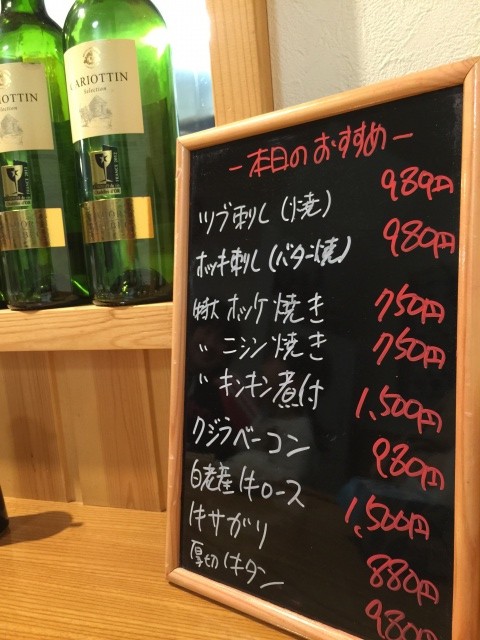 ARIOTTIN
CARIOTTIN
Selection
-本日のおすすめ-
ツブ刺し(焼) 980円
ホッキ刺し(バター焼) 980円
特大 ホッケ焼き 750円
〃 ニシン焼き 750円
〃 キンキン煮付 1,500円
クジラベーコン 980円
白老産牛ロース 1,500円
牛サガリ 880円
厚切牛タン 980円